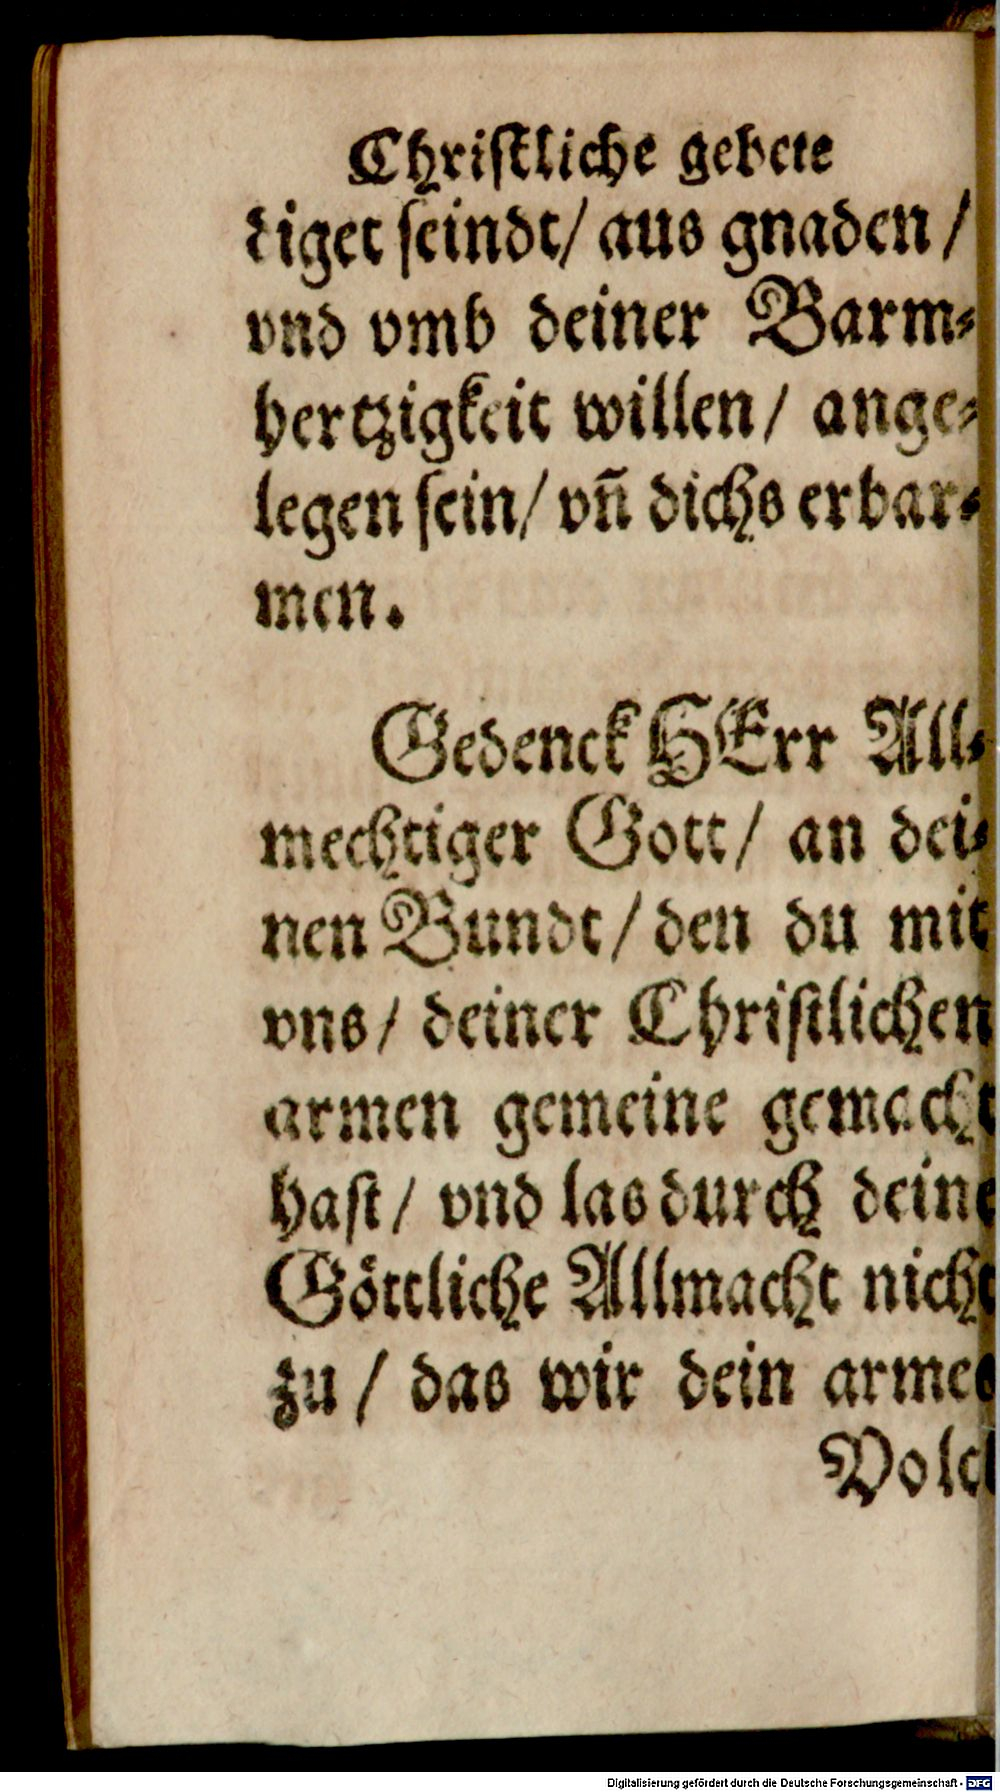 Christliche gebete
tiget seindt/ aus gnaden/
vnd vmb deiner Barm-
hertzigkeit willen/ ange-
legen sein/ vñ dichs erbar-
men.
Gedenck HErr All-
mechtiger Gott/ an dei-
nen Bundt/ den du mit
vns/ deiner Christlichen
armen gemeine gemacht
hast/ vnd las durch deine
Göttliche Allmacht nicht
zu/ das wir dein armes
Volck
Digitalisierung gefördert durch die Deutsche Forschungsgemeinschaft - DFG